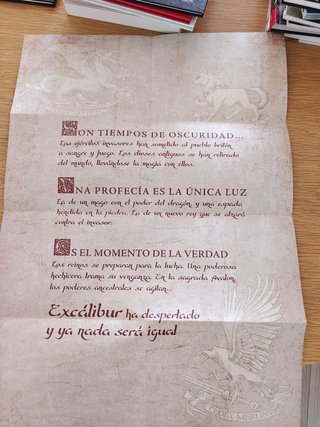 SON TIEMPOS DE OSCURIDAD...
Los ejércitos invasores han sometido al pueblo britón
a sangre y fuego. Los dioses antiguos se han retirado
del mundo, llevándose la magia con ellos.
UNA PROFECÍA ES LA ÚNICA LUZ
La de un mago con el poder del dragón, y una espada
hendida en la piedra. La de un nuevo rey que se alzará
contra el invasor.
ES EL MOMENTO DE LA VERDAD
Los reinos se preparan para la lucha. Una poderosa
hechicera trama su venganza. En la sagrada Avalon,
los poderes ancestrales se agitan...
Excálibur ha despertado
y ya nada será igual